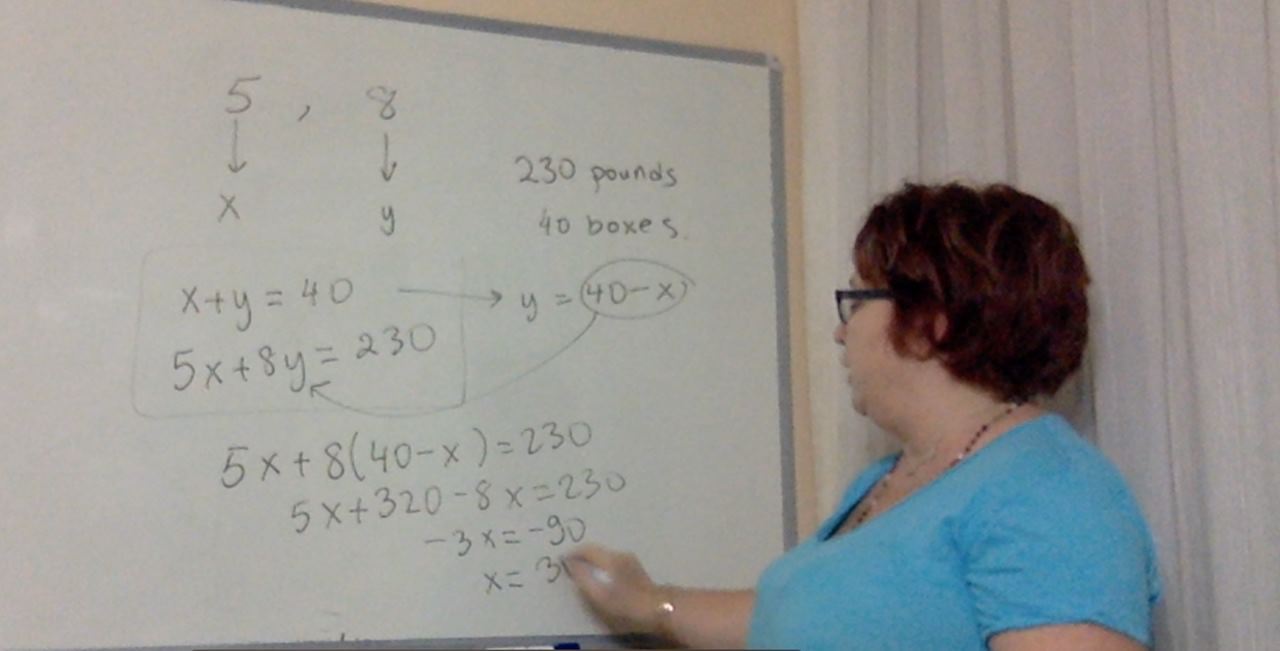 5 , 8
↓ ↓
x y
230 pounds
40 boxes
x+y=40 → y=40-x
5x+8y=230
5x+8(40-x)=230
5x+320-8x=230
-3x=-90
x=3